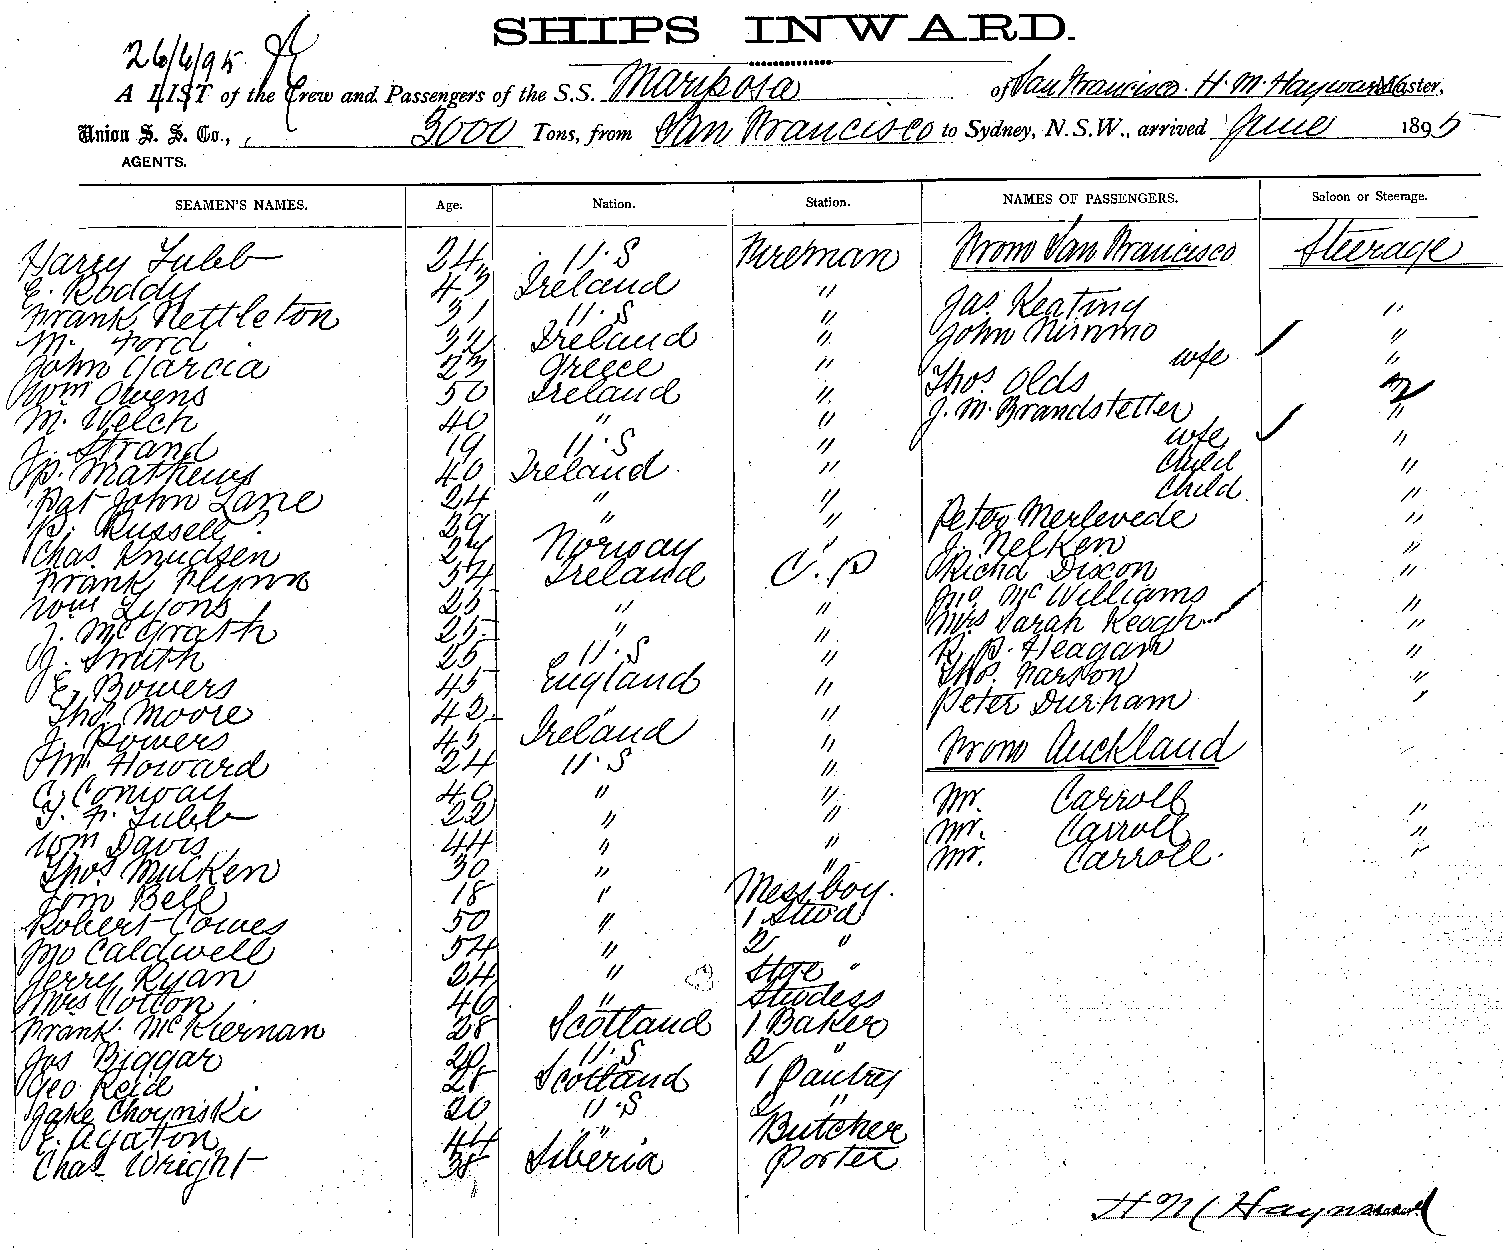 SHIPS INWARD.
26/6/95
A LIST of the Crew and Passengers of the S.S. Mariposa of San Francisco. H. M. Hayward Master,
Union S. S. Co., 3000 Tons, from San Francisco to Sydney, N.S.W., arrived June 1895
AGENTS.
SEAMEN'S NAMES. Age. Nation. Station. NAMES OF PASSENGERS. Saloon or Steerage.
Harry Tubb 24 U.S Fireman From San Francisco Steerage
E. Roddy 43 Ireland " Jas. Keating "
Frank Nettleton 31 U.S " John Nimmo "
M. Ford 32 Ireland " wfe "
John Garcia 23 Greece " Thos. Olds 2
Wm Owens 50 Ireland " J. M. Brandstetter "
M. Welch 40 " " wfe "
J. Strand 19 U.S " Child "
P. Mathews 40 Ireland " Child "
Pat John Lane 24 " " Peter Merlevede "
P. Russell 29 " " J. Nelken "
Chas. Knudsen 24 Norway " Richd Dixon "
Frank Flynn 34 Ireland C.P Jno. McWilliams "
Wm Lyons 25 " " Mrs Sarah Keagh "
J. McGrath 25 " " R. B. Heagan "
J. Smith 25 U.S " Thos. "
E. Bowers 45 England " Peter Durham "
Thos. Moore 42 " "
J. Powers 45 Ireland " From Auckland
M. Howard 24 U.S "
C. Conway 40 " " Mr. Carroll "
T. F. Tubb 22 " " Mr. Carroll "
Wm Davis 44 " " Mr. Carroll. "
Thos. Mulken 30 " "
Tom Bell 18 " Messboy.
Robert Cowes 50 " 1 Stwd
Jno Caldwell 54 " 2 "
Jerry Ryan 24 " Stge "
Mrs Cotton 46 " Stwdess
Frank McKiernan 28 Scotland 1 Baker
Jas Biggar 20 U.S 2 "
Geo Reid 28 Scotland 1 Pantry
Jake Choynski 20 U.S 2 "
E. Agaton 44 " Butcher
Chas Wright 38 Siberia Porter
H M Hayward